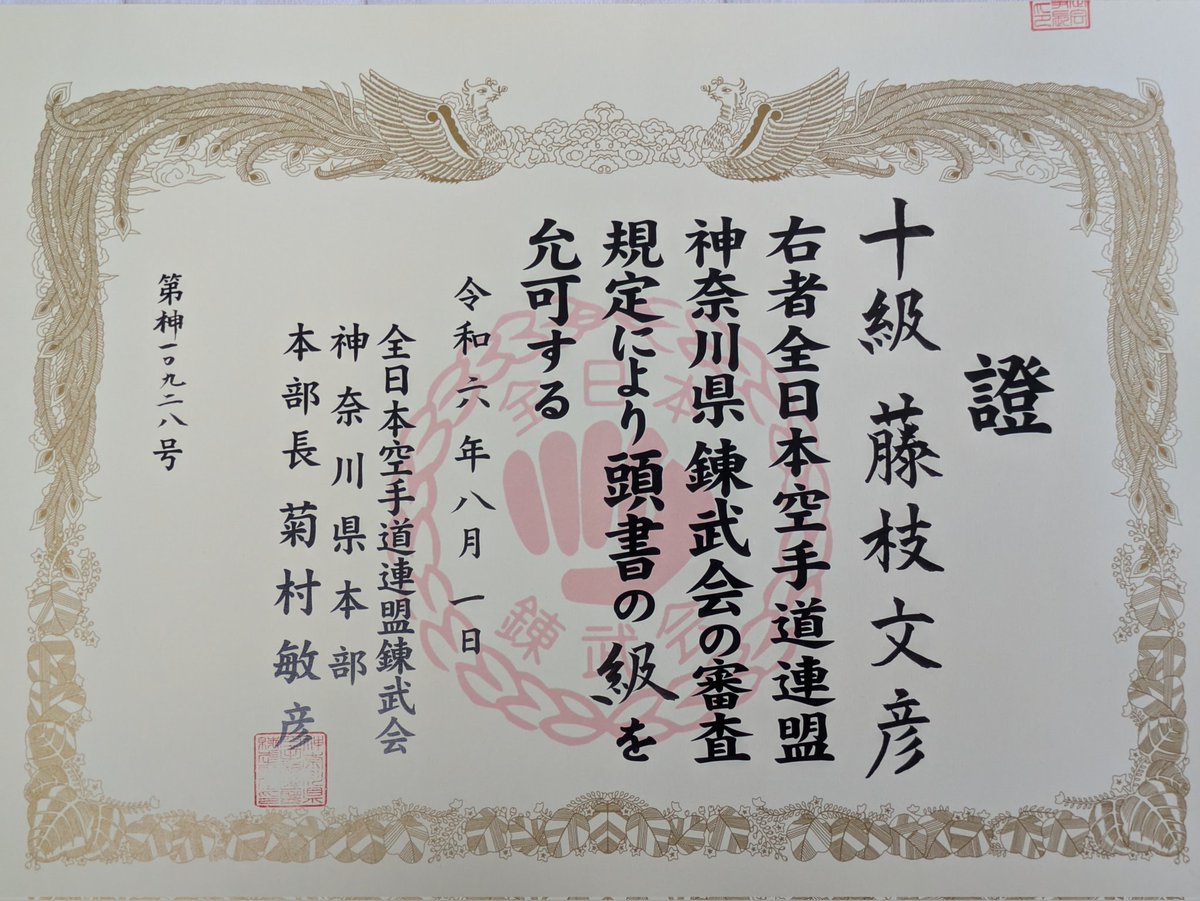 證
十級 藤枝文彦
右者全日本空手道連盟
神奈川県錬武会の審査
規定により頭書の級を
允可する
令和六年八月一日
全日本空手道連盟錬武会
神奈川県本部
本部長 菊村敏彦
第神一〇九二八号
全日本
錬武会